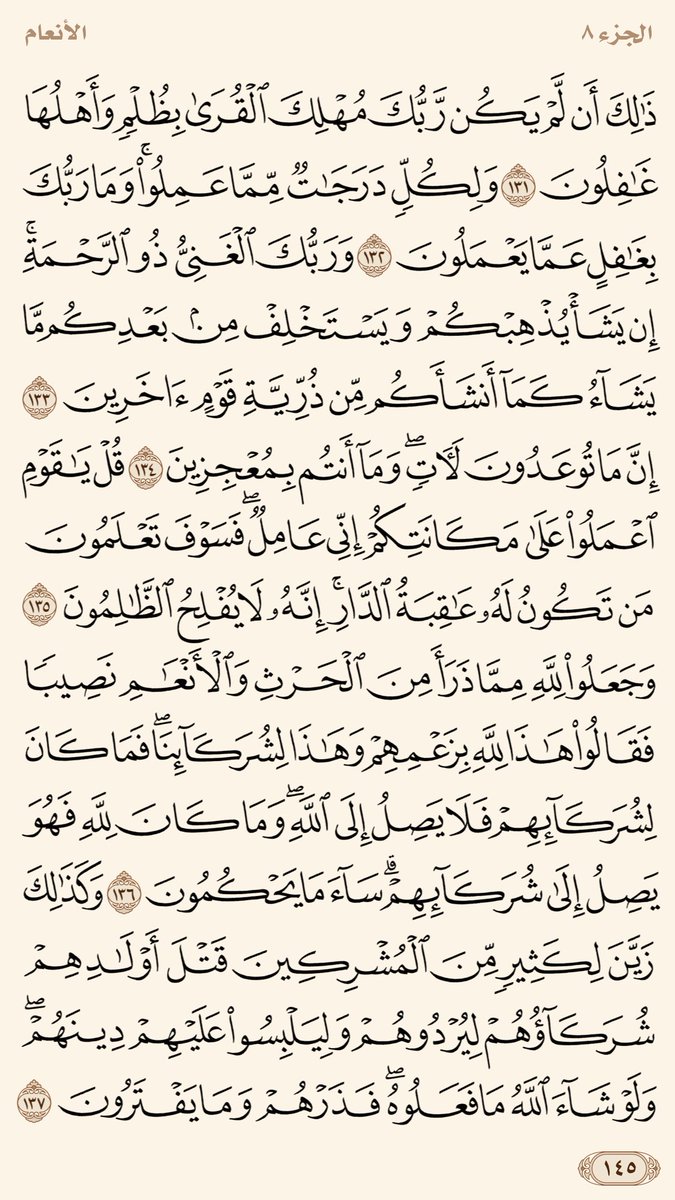 الجزء ٨
الأنعام
ذَٰلِكَ أَن لَّمْ يَكُن رَّبُّكَ مُهْلِكَ ٱلْقُرَىٰ بِظُلْمٍ وَأَهْلُهَا
غَٰفِلُونَ ١٣١ وَلِكُلٍّ دَرَجَٰتٌ مِّمَّا عَمِلُوا۟ۚ وَمَا رَبُّكَ
بِغَٰفِلٍ عَمَّا يَعْمَلُونَ ١٣٢ وَرَبُّكَ ٱلْغَنِىُّ ذُو ٱلرَّحْمَةِۚ
إِن يَشَأْ يُذْهِبْكُمْ وَيَسْتَخْلِفْ مِنۢ بَعْدِكُم مَّا
يَشَآءُ كَمَآ أَنشَأَكُم مِّن ذُرِّيَّةِ قَوْمٍ ءَاخَرِينَ ١٣٣
إِنَّ مَا تُوعَدُونَ لَءَاتٍۖ وَمَآ أَنتُم بِمُعْجِزِينَ ١٣٤ قُلْ يَٰقَوْمِ
ٱعْمَلُوا۟ عَلَىٰ مَكَانَتِكُمْ إِنِّى عَامِلٌۖ فَسَوْفَ تَعْلَمُونَ
مَن تَكُونُ لَهُۥ عَٰقِبَةُ ٱلدَّارِۚ إِنَّهُۥ لَا يُفْلِحُ ٱلظَّٰلِمُونَ ١٣٥
وَجَعَلُوا۟ لِلَّهِ مِمَّا ذَرَأَ مِنَ ٱلْحَرْثِ وَٱلْأَنْعَٰمِ نَصِيبًا
فَقَالُوا۟ هَٰذَا لِلَّهِ بِزَعْمِهِمْ وَهَٰذَا لِشُرَكَآئِنَاۖ فَمَا كَانَ
لِشُرَكَآئِهِمْ فَلَا يَصِلُ إِلَى ٱللَّهِۖ وَمَا كَانَ لِلَّهِ فَهُوَ
يَصِلُ إِلَىٰ شُرَكَآئِهِمْۗ سَآءَ مَا يَحْكُمُونَ ١٣٦ وَكَذَٰلِكَ
زَيَّنَ لِكَثِيرٍ مِّنَ ٱلْمُشْرِكِينَ قَتْلَ أَوْلَٰدِهِمْ
شُرَكَآؤُهُمْ لِيُرْدُوهُمْ وَلِيَلْبِسُوا۟ عَلَيْهِمْ دِينَهُمْۖ
وَلَوْ شَآءَ ٱللَّهُ مَا فَعَلُوهُۖ فَذَرْهُمْ وَمَا يَفْتَرُونَ ١٣٧
١٤٥